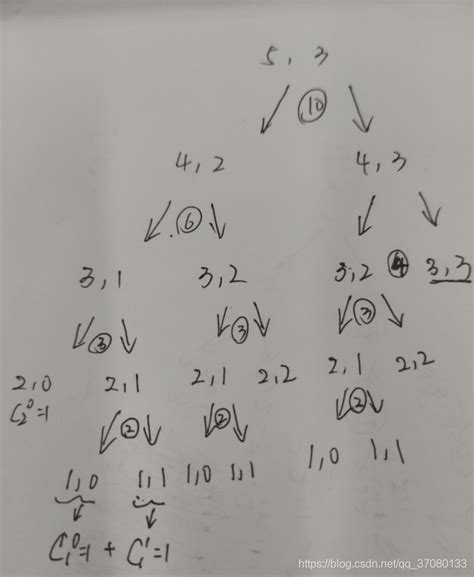 5, 3
⑩
4, 2 4, 3
⑥
3, 1 3, 2 3, 2 ④ 3, 3
③ ③ ③
2, 0 2, 1 2, 1 2, 2 2, 1 2, 2
C₂⁰=1 ② ② ②
1, 0 1, 1 1, 0 1, 1 1, 0 1, 1
C₁⁰=1 + C₁¹=1
https://blog.csdn.net/qq_37080133